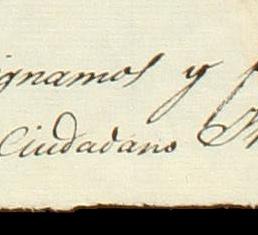 ignamos y
Ciudadano